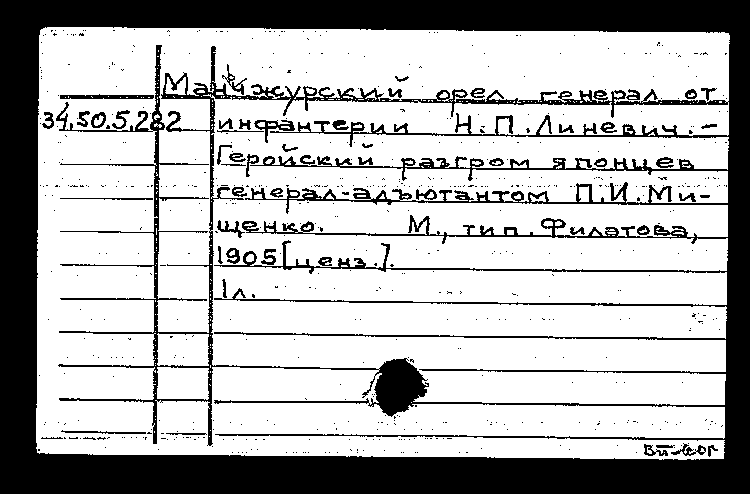 Манчжурский орел, генерал от
34.50.5.282 инфантерии Н.П.Линевич.-
Геройский разгром японцев
генерал-адъютантом П.И.Ми-
щенко. М., тип. Филатова,
1905[ценз.].
1л.